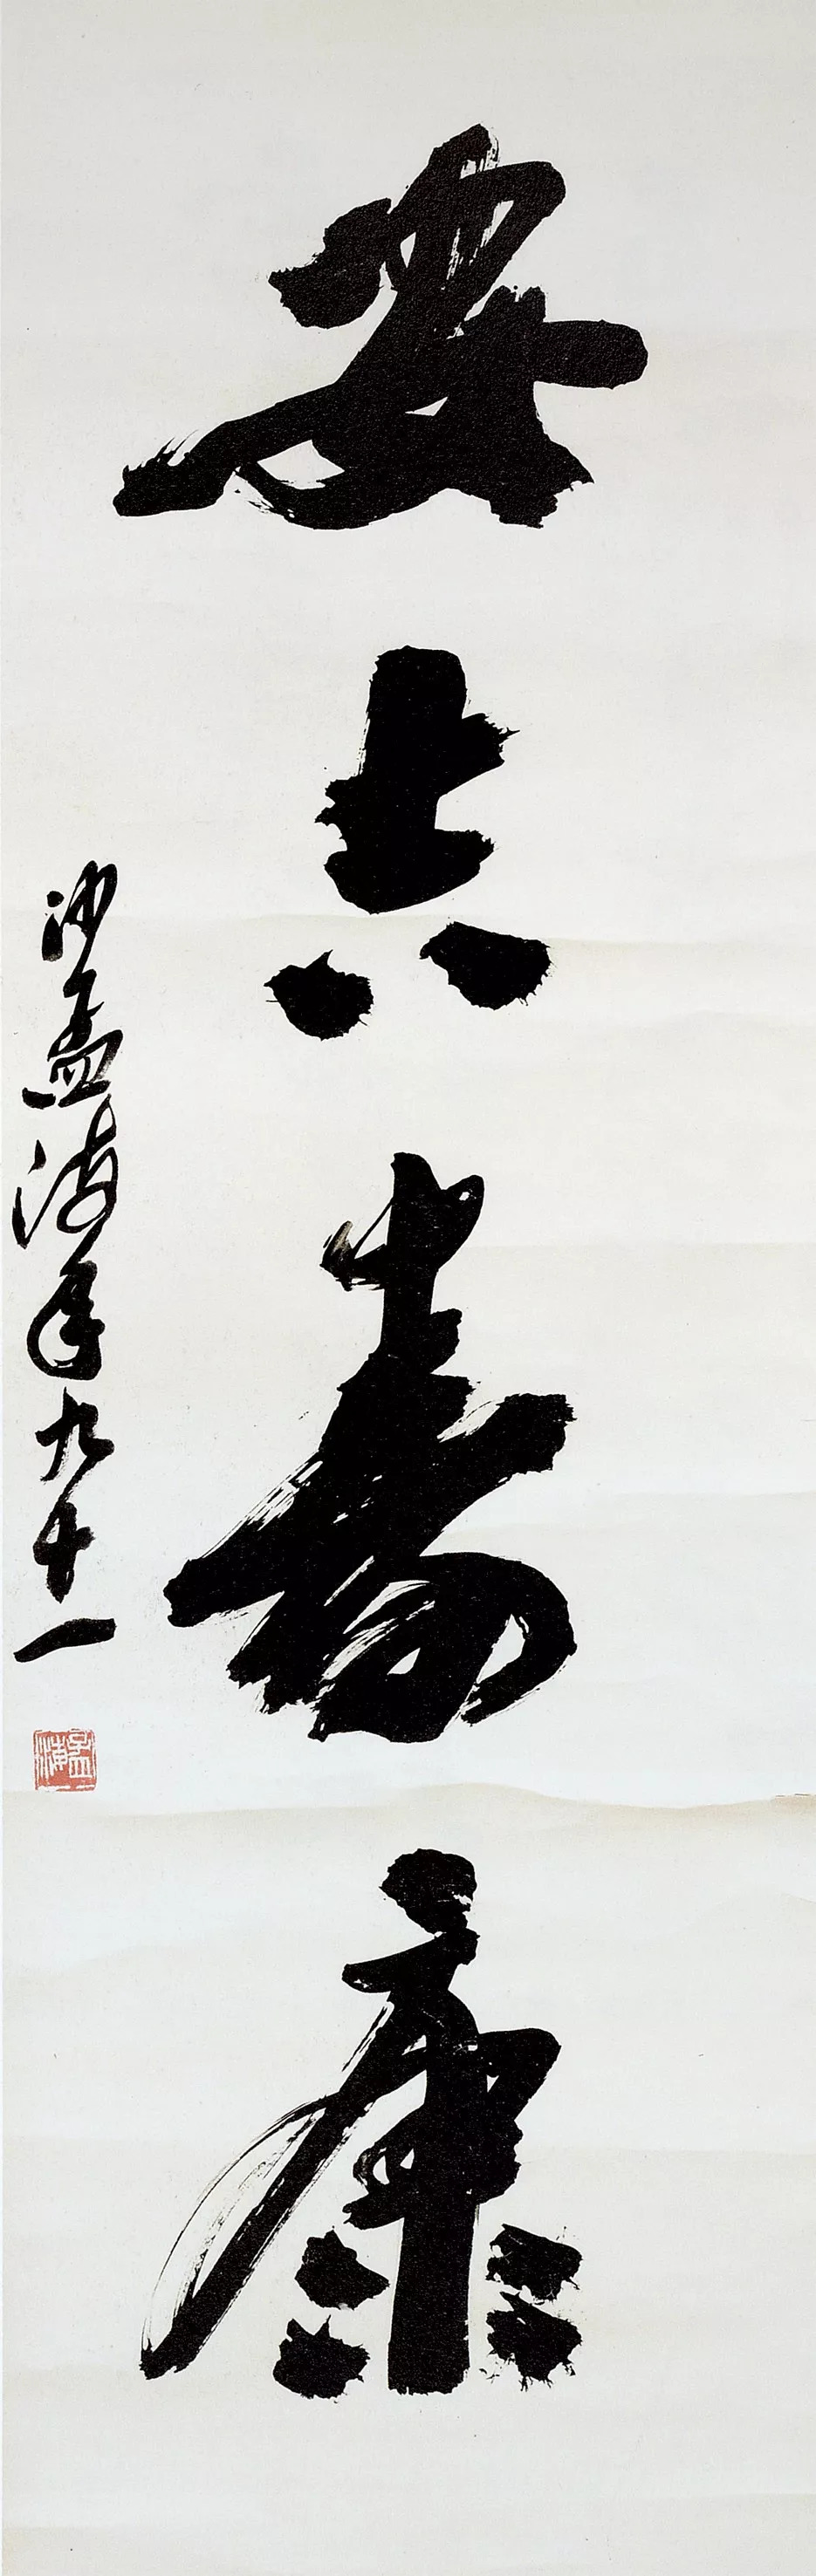 安吉寿康
沙孟海年九十一
孟海